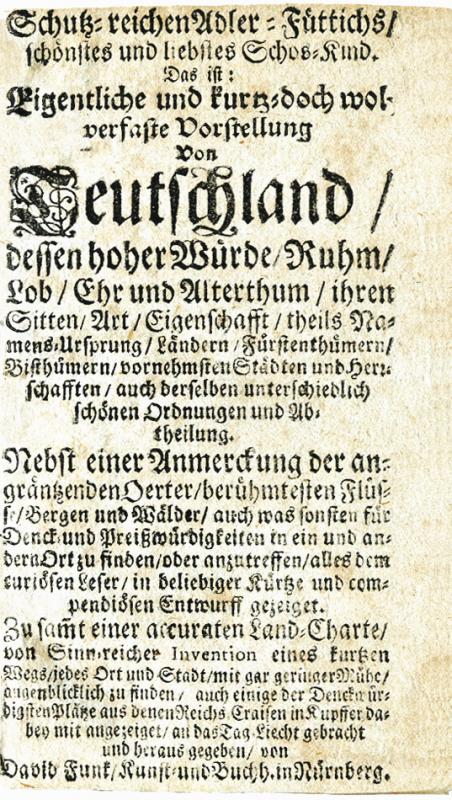 Schutz-reichen Adler-Füttichs/
schönstes und liebstes Schos-Kind.
Das ist:
Eigentliche und kurtz-doch wol-
verfaste Vorstellung
Von
Teutschland /
dessen hoher Würde/Ruhm/
Lob / Ehr und Alterthum / ihren
Sitten/Art/Eigenschafft/theils Na-
mens-Ursprung/Ländern/Fürstenthümern/
Bisthümern/vornehmsten Städten und Herr-
schafften/auch derselben unterschiedlich
schönen Ordnungen und Ab-
theilung.
Nebst einer Anmerckung der an-
gräntzenden Oerter/berühmtesten Flüs-
se/Bergen und Wälder/auch was sonsten für
Denck-und Preißwürdigkeiten in ein und an-
dern Ort zu finden/oder anzutreffen/alles dem
curiösen Leser/in beliebiger Kürtze und com-
pendiösen Entwurff gezeiget.
Zu sam̃t einer accuraten Land-Charte/
von Sinn-reicher Invention eines kurtzen
Wegs/jedes Ort und Stadt/mit gar geringer Mühe/
augenblicklich zu finden/ auch einige der Denckwür-
digsten Plätze aus denen Reichs-Craisen in Kupffer da-
bey mit angezeiget/an das Tag-Liecht gebracht
und heraus gegeben/von
David Funk/Kunst-und Buchh. in Nürnberg.